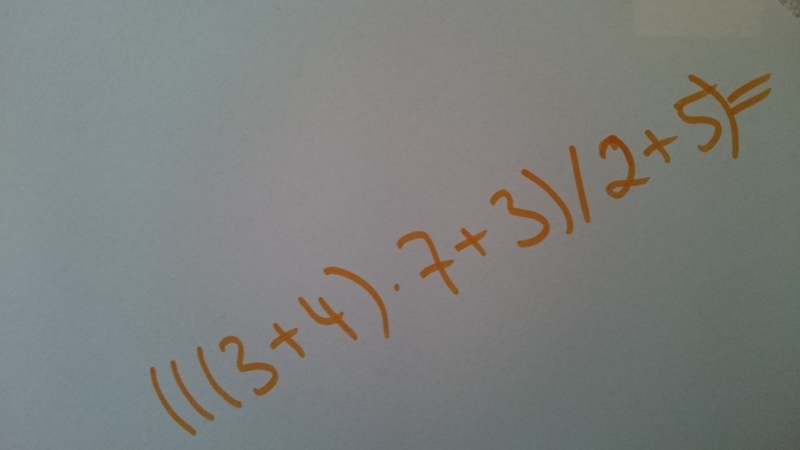 (((3+4)·7+3)/2+5)=